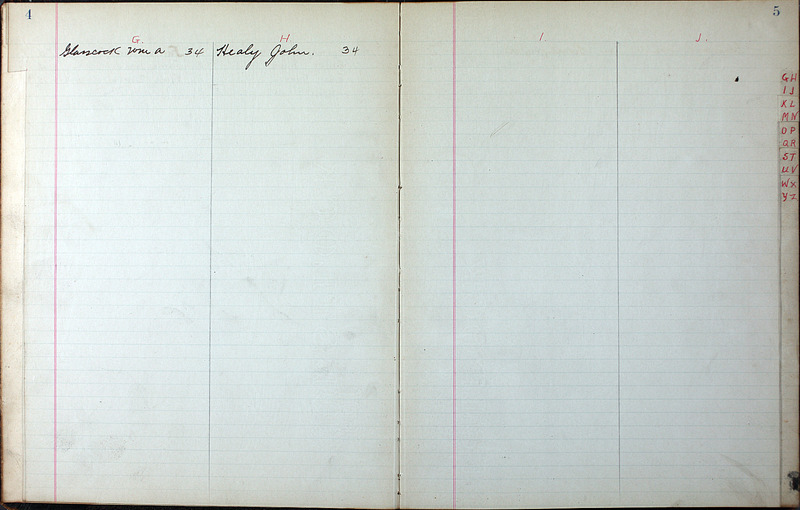 4
G.
H
Glasscock Wm A 34
Healy John. 34
5
I.
J.
GH
IJ
KL
MN
OP
QR
ST
UV
WX
YZ